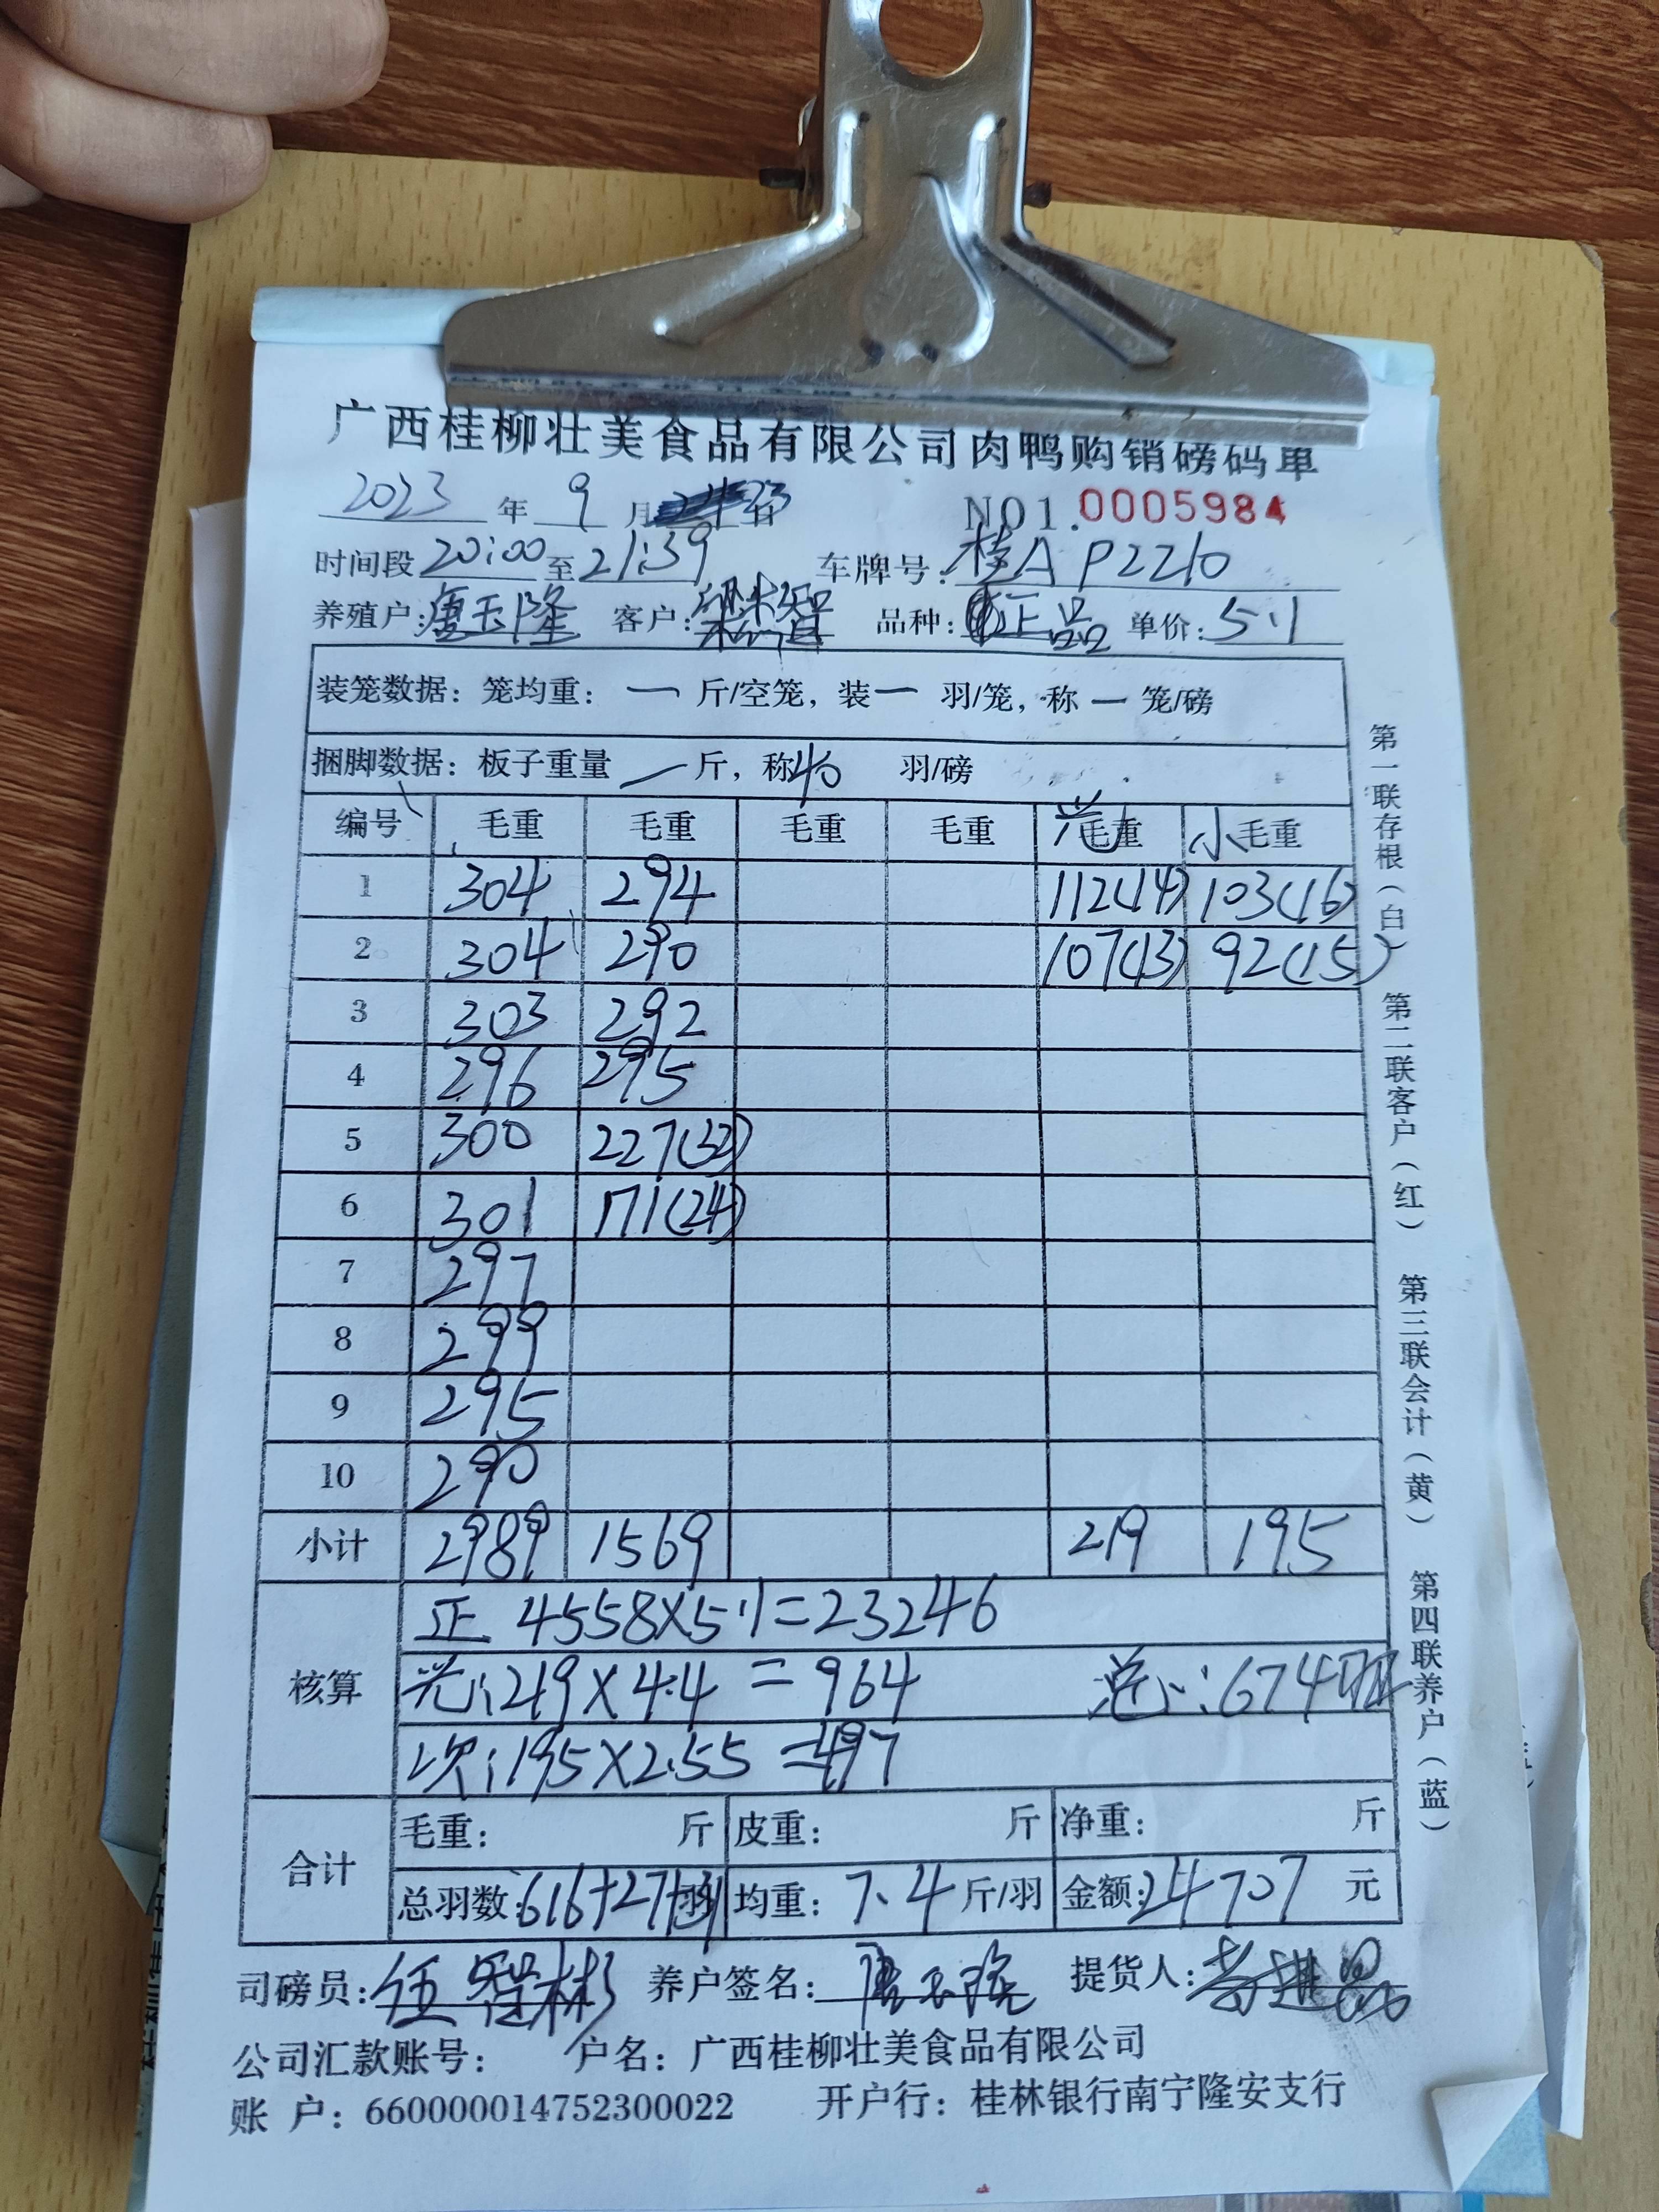 广西桂柳壮美食品有限公司肉鸭购销磅码单
2023 年 9 月 23 日 NO1.0005984
时间段 20:00 至 21:39 车牌号: 桂A P2210
养殖户: 玉隆 客户: 智 品种: 正品 单价: 5.1
装笼数据: 笼均重: — 斤/空笼, 装 — 羽/笼, 称 — 笼/磅
捆脚数据: 板子重量 — 斤, 称 40 羽/磅
编号 毛重 毛重 毛重 毛重 光毛重 小毛重
1 304 294 112(14) 103(16)
2 304 290 107(13) 92(15)
3 303 292
4 296 295
5 300 227(32)
6 301 171(24)
7 297
8 299
9 295
10 290
小计 2989 1569 219 195
核算
正 4558×5.1=23246
光:219×4.4=964 总:674
次:195×2.55=497
合计 毛重: 斤 皮重: 斤 净重: 斤
总羽数:616+27+31羽 均重: 7.4 斤/羽 金额:24707 元
司磅员: 伍智彬 养户签名: 提货人:
公司汇款账号: 户名: 广西桂柳壮美食品有限公司
账 户: 660000014752300022 开户行: 桂林银行南宁隆安支行
第一联存根(白) 第二联客户(红) 第三联会计(黄) 第四联养户(蓝)